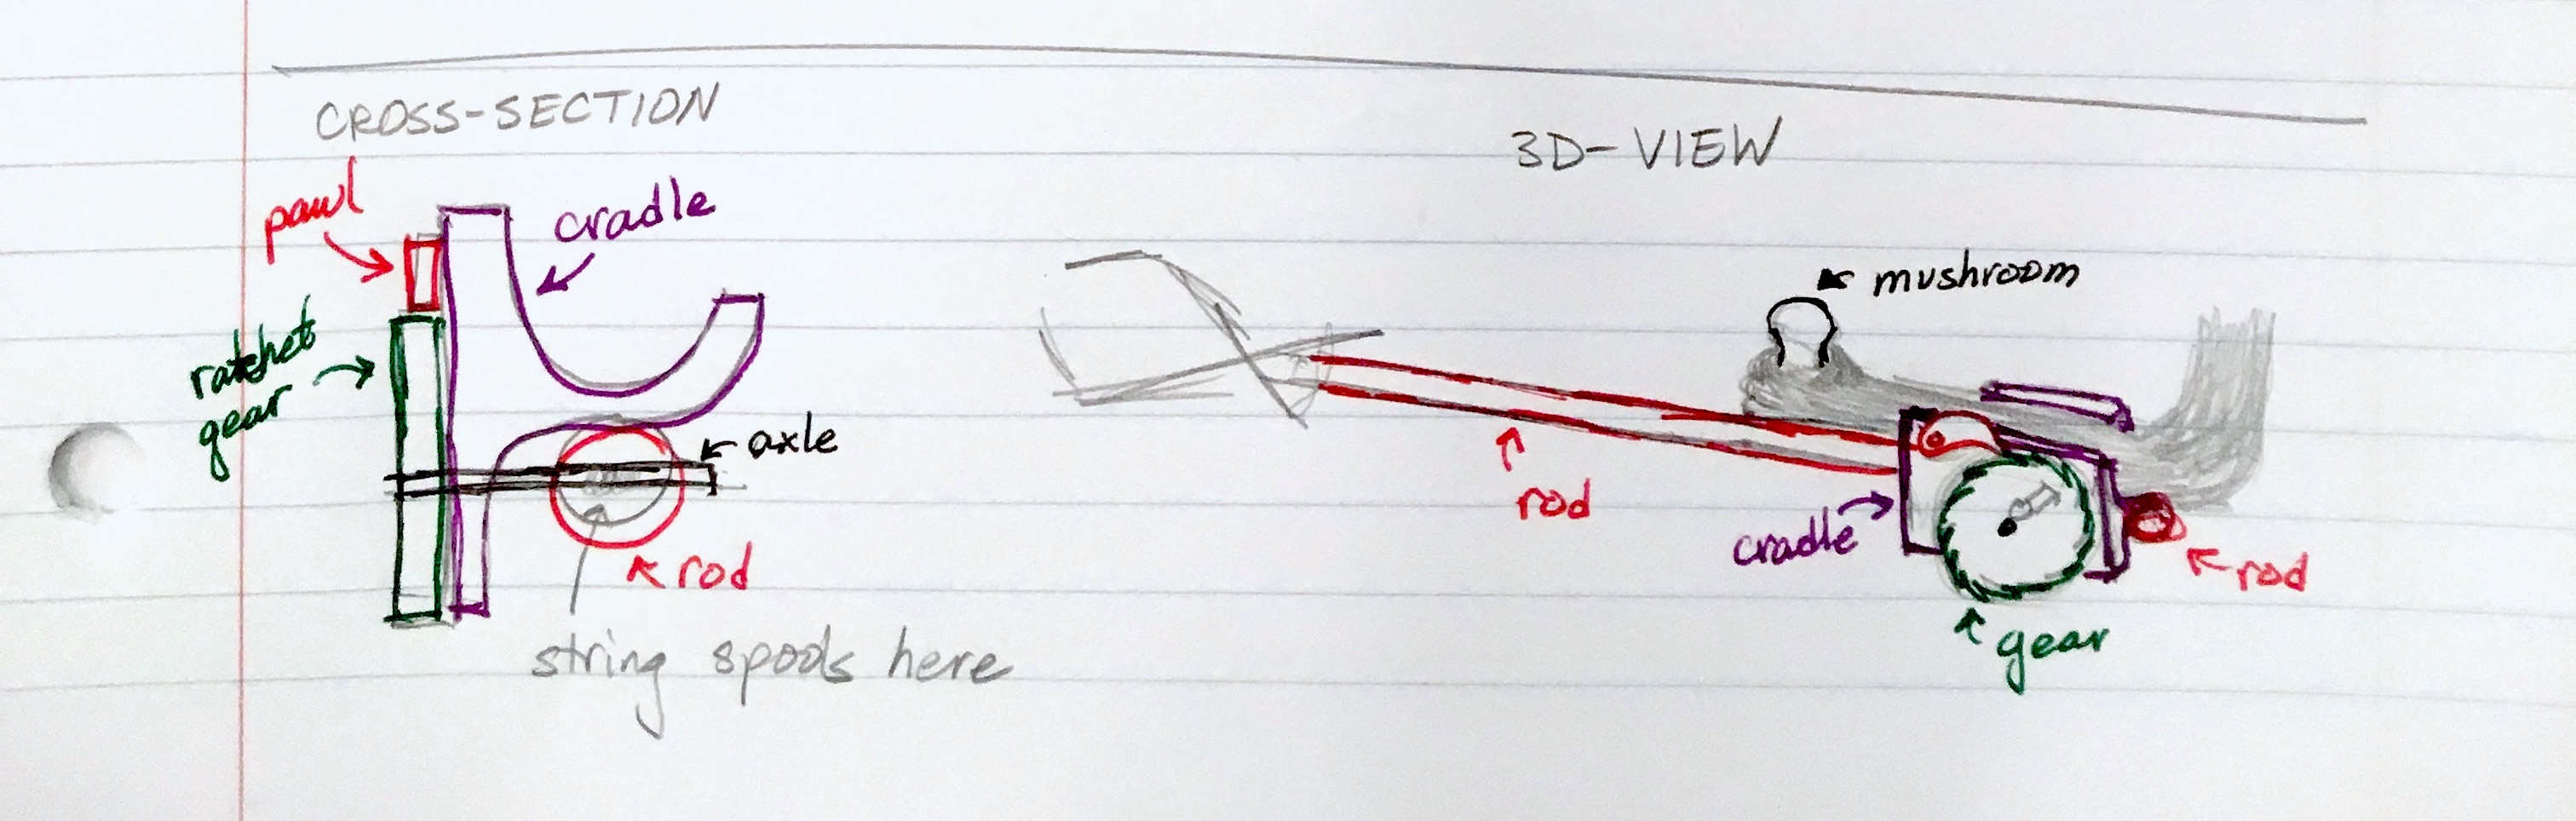 CROSS-SECTION
pawl
cradle
ratchet
gear
axle
rod
string spools here
3D-VIEW
mushroom
rod
cradle
rod
gear